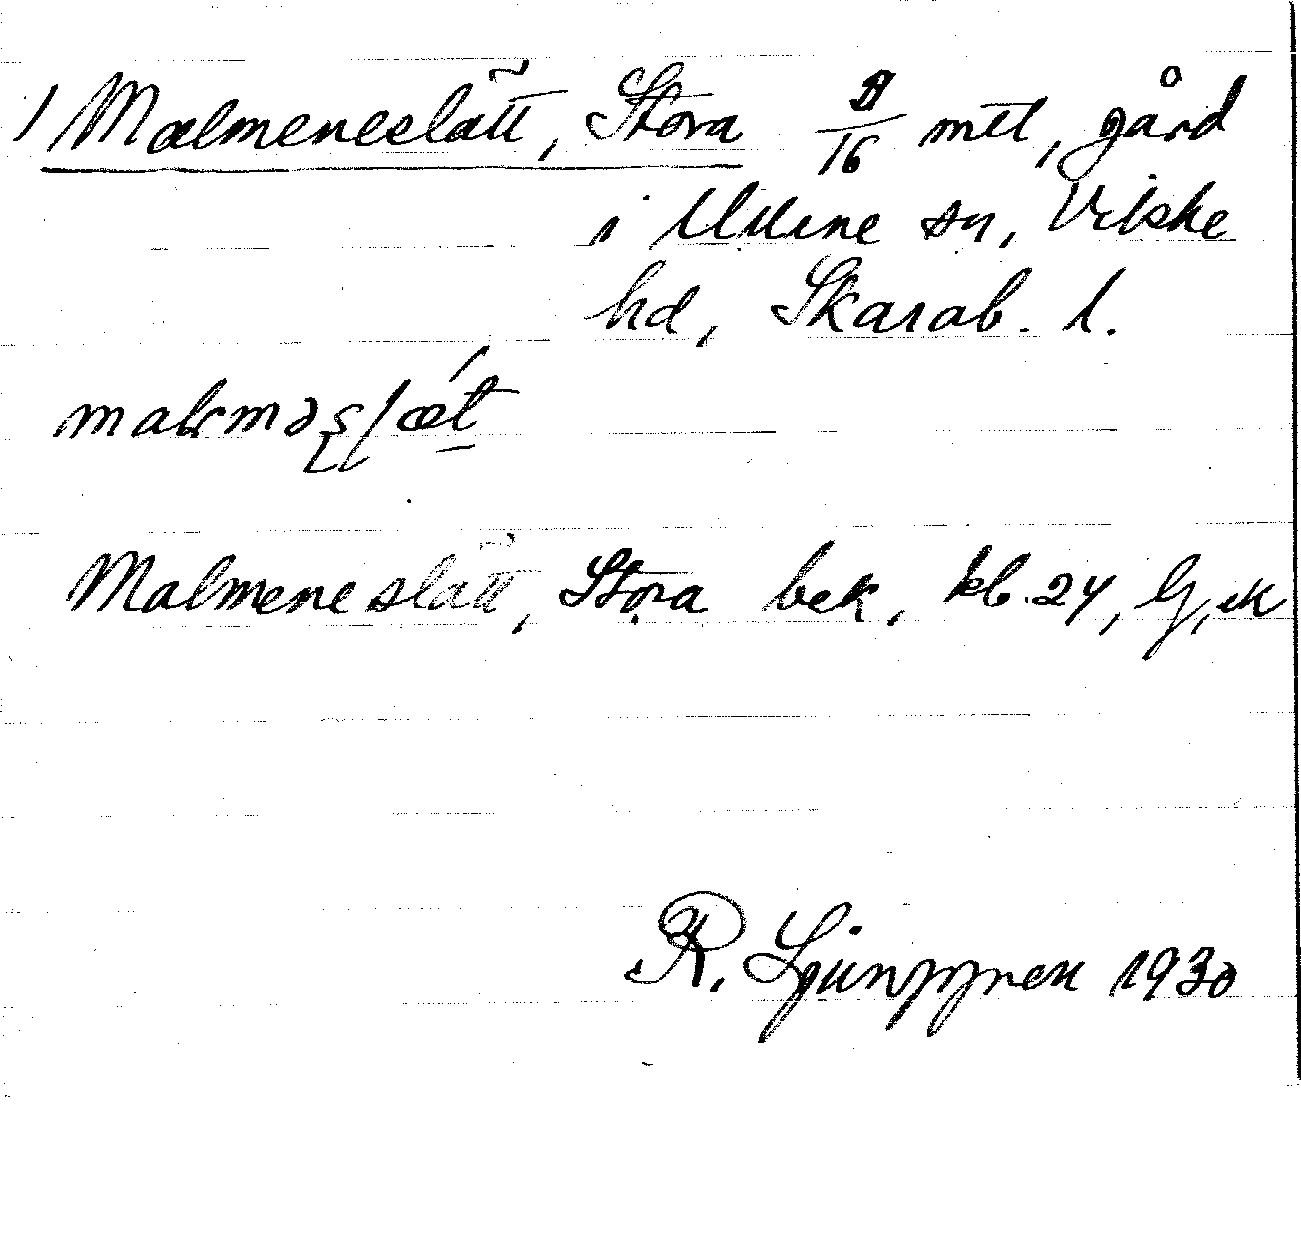 1) Malmeneslätt, Stora /16 mtl, gård
i Ullene sn, Vilske
hd, Skarab. l.
Malmeneslätt, Stora bek, kb. 24, Lj, ek
R. Ljunggren 1930